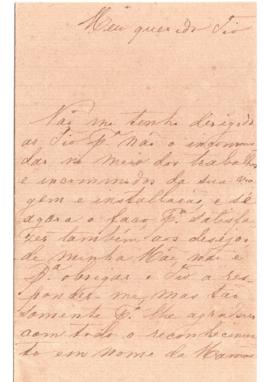 Meu querido Tio
Não me tenho dirigido
ao Tio pª não o incommo
dar no meio dos trabalhos
e incommodos da sua via
gem e installação, e só
agora o faço, pª satisfa
zer também aos desejos
de minha Mãe, não é
pª obrigar o Tio a res
ponder-me, mas tão
somente pª lhe agradecer
com todo o reconhecimen
to em nome da Mamãe